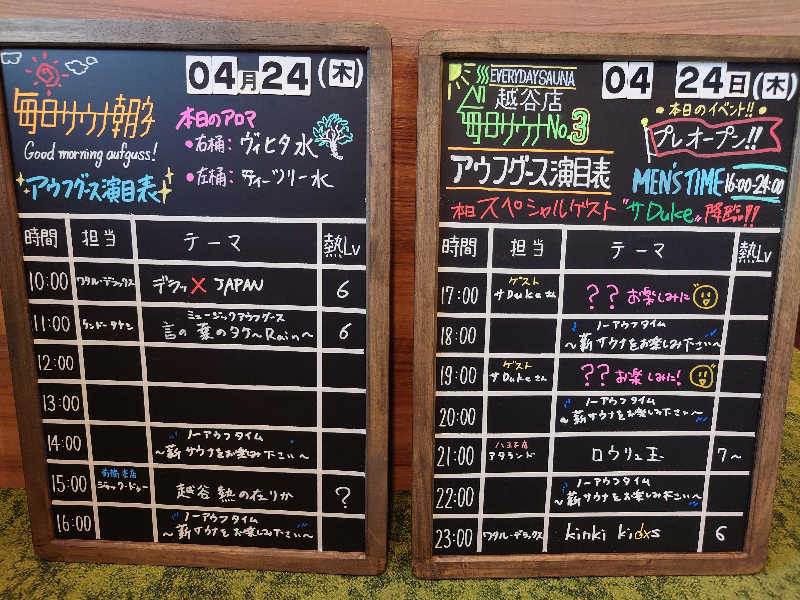 04月24(木)
毎日サウナ朝介
Good morning aufguss!
アウフグース演目表
本日のアロマ
・右桶: ヴィヒタ水
・左桶: ティーツリー水
時間 担当 テーマ 熱Lv
10:00 ワタル・デラックス デラックス×JAPAN 6
11:00 ミュージックアウフグース 言の葉のタク〜Rain〜 6
12:00
13:00
14:00 ノーアウフタイム
〜薪サウナをお楽しみ下さい〜
15:00 前橋本店 ジャック・ドゥー 越谷 熱の在りか ?
16:00 ノーアウフタイム
〜薪サウナをお楽しみ下さい〜
EVERYDAYSAUNA
越谷店
毎日サウナNo.3
アウフグース演目表
04 24日(木)
・本日のイベント!!・
プレオープン!!
MEN'S TIME 16:00-24:00
本日スペシャルゲスト "サDuke"降臨!!
時間 担当 テーマ 熱Lv
17:00 ゲスト サDukeさん ??お楽しみに
18:00 ノーアウフタイム
〜薪サウナをお楽しみ下さい〜
19:00 ゲスト サDukeさん ??お楽しみに!
20:00 ノーアウフタイム
〜薪サウナをお楽しみ下さい〜
21:00 八王子店 アタランド ロウリュ王 7〜
22:00 ノーアウフタイム
〜薪サウナをお楽しみ下さい〜
23:00 ワタル・デラックス kinki kidxs 6